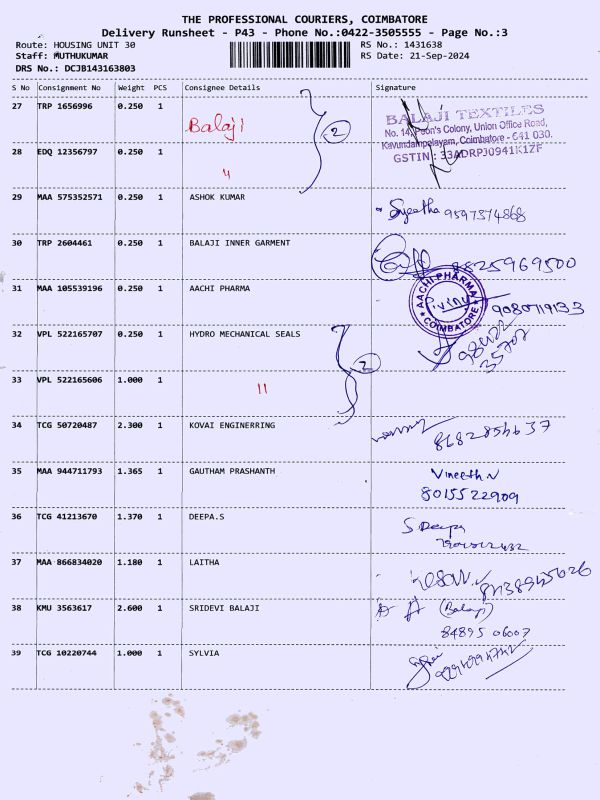 THE PROFESSIONAL COURIERS, COIMBATORE
Delivery Runsheet - P43 - Phone No.:0422-3505555 - Page No.:3
Route: HOUSING UNIT 30 RS No.: 1431638
Staff: MUTHUKUMAR RS Date: 21-Sep-2024
DRS No.: DCJB143163803
S No Consignment No Weight PCS Consignee Details Signature
27 TRP 1656996 0.250 1
Balaji 2
BALAJI TEXTILES
No. 14, Poon's Colony, Union Office Road,
Kavundampalayam, Coimbatore - 641 030.
GSTIN : 33ADRPJ0941K1ZF
28 EDQ 12356797 0.250 1
"
29 MAA 575352571 0.250 1 ASHOK KUMAR
9597374868
30 TRP 2604461 0.250 1 BALAJI INNER GARMENT
8825969500
31 MAA 105539196 0.250 1 AACHI PHARMA
AACHI PHARMA
COIMBATORE
9080719133
32 VPL 522165707 0.250 1 HYDRO MECHANICAL SEALS
2
33 VPL 522165606 1.000 1
"
34 TCG 50720487 2.300 1 KOVAI ENGINERRING
35 MAA 944711793 1.365 1 GAUTHAM PRASHANTH
Vineeth N
8015522909
36 TCG 41213670 1.370 1 DEEPA.S
S Deepa
37 MAA 866834020 1.180 1 LAITHA
38 KMU 3563617 2.600 1 SRIDEVI BALAJI
(Balaji)
84895 06007
39 TCG 10220744 1.000 1 SYLVIA